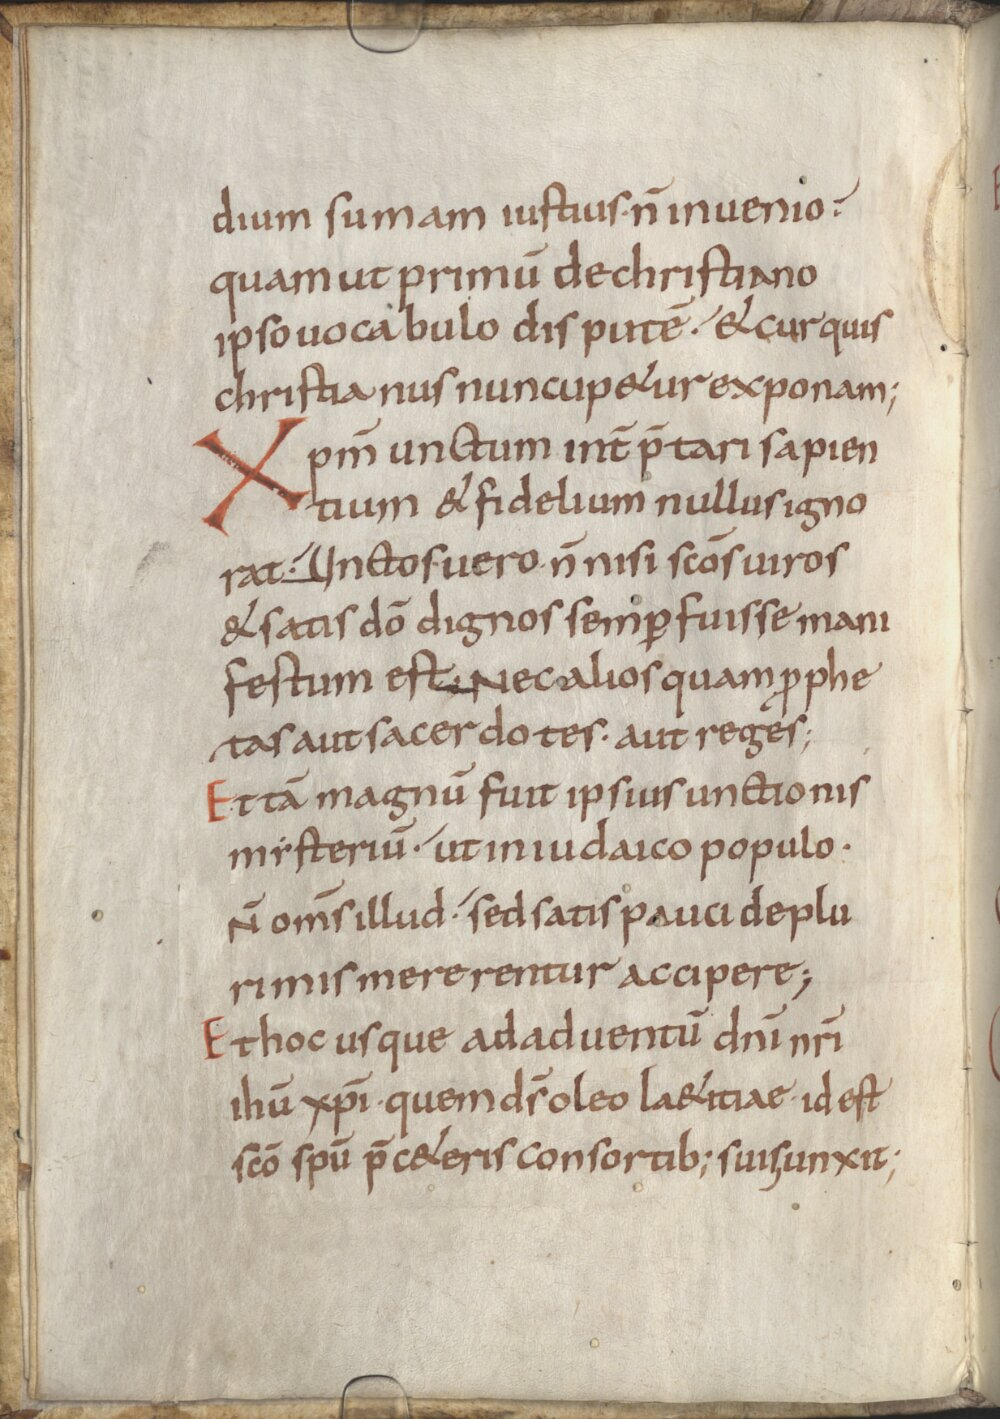 dium sumam iustius· n̄ inuenio:
quam ut primū de christiano
ipso uocabulo disputē·́ & cur quis
christianus nuncup&ur exponam;
Xpm̄ unctum int̄ p̄tari sapien
tium & fidelium nullus igno
rat·́ Unctos uero· n̄ nisi scōs uiros
& satis dō dignos semꝑ fuisse mani
festum est· Nec alios quam ꝓphe
tas aut sacerdotes· aut reges;
Et tā magnū fuit ipsius unctionis
mẏsteriū·́ ut in iudaico populo·
N̄ om̄s illud·́ sed satis pauci de plu
rimis mererentur accipere;
Et hoc usque ad aduentū dn̄i nr̄i
ihū xp̄i· quem ds̄ oleo la&itiae· id est
scō spū p̄ c&eris consortib; suis unxit;